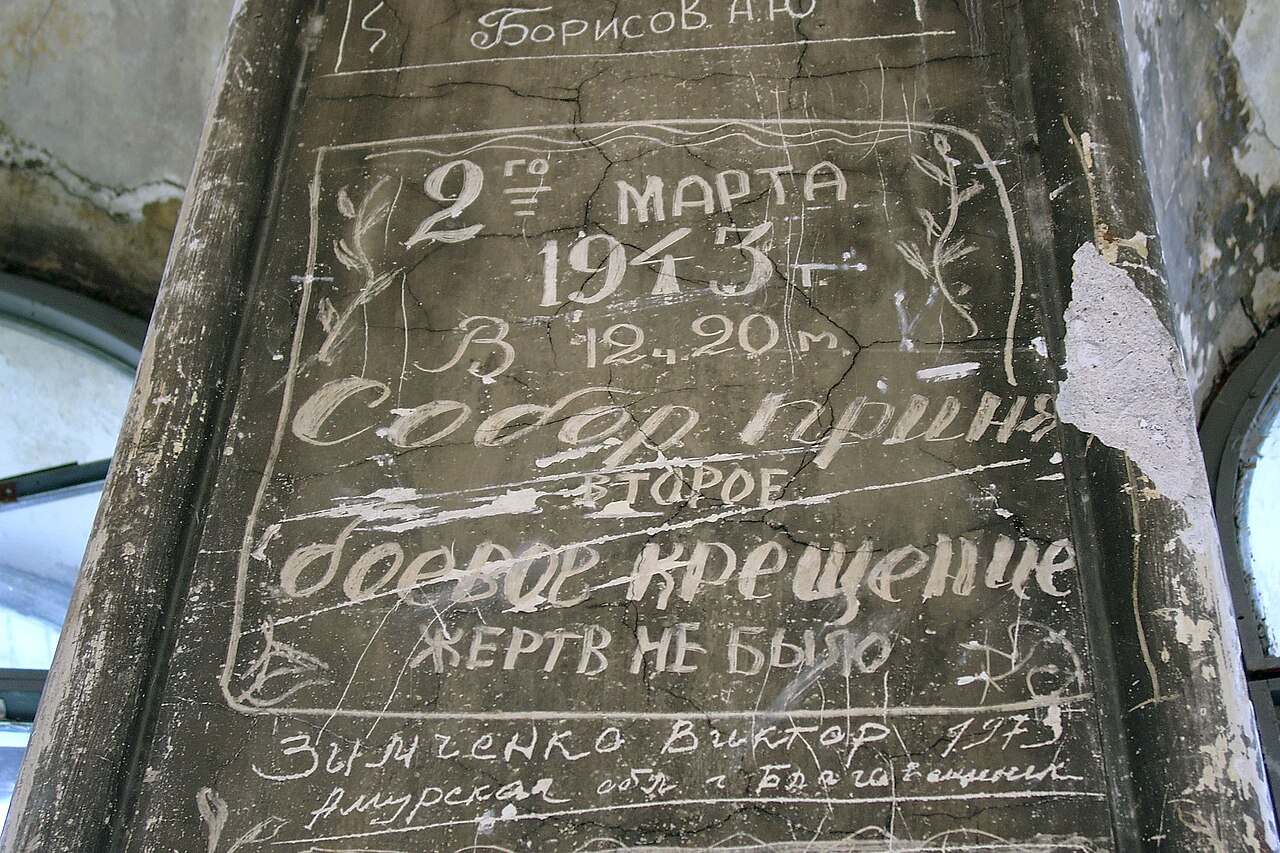 Борисов. А.Ю
2го МАРТА
1943 г.
В 12ч. 20 м.
Собор приня
ВТОРОЕ
боевое крещение
ЖЕРТВ НЕ БЫЛО
Зымченко Виктор 1973
Амурская обл г Благовещенск